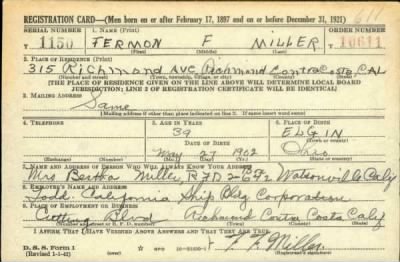 REGISTRATION CARD—(Men born on or after February 17, 1897 and on or before December 31, 1921)
SERIAL NUMBER 1. NAME (Print) ORDER NUMBER
T 1150 FERMON F MILLER T 10611
(First) (Middle) (Last)
2. PLACE OF RESIDENCE (Print)
315 Richmond Ave Richmond Contra Costa CAL
(Number and street) (Town, township, village, or city) (County) (State)
[THE PLACE OF RESIDENCE GIVEN ON THE LINE ABOVE WILL DETERMINE LOCAL BOARD
JURISDICTION; LINE 2 OF REGISTRATION CERTIFICATE WILL BE IDENTICAL]
3. MAILING ADDRESS
Same
[Mailing address if other than place indicated on line 2. If same insert word same]
4. TELEPHONE 5. AGE IN YEARS 6. PLACE OF BIRTH
39 ELGIN
DATE OF BIRTH (Town or county)
May 27 1902 Ohio
(Exchange) (Number) (Mo.) (Day) (Yr.) (State or country)
7. NAME AND ADDRESS OF PERSON WHO WILL ALWAYS KNOW YOUR ADDRESS
Mrs Bertha Miller RFD 2 Watsonville Calif
8. EMPLOYER'S NAME AND ADDRESS
Todd California Ship Bldg Corporation
9. PLACE OF EMPLOYMENT OR BUSINESS
Cutting Blvd Richmond Contra Costa Calif
(Number and street or R. F. D. number) (Town) (County) (State)
I AFFIRM THAT I HAVE VERIFIED ABOVE ANSWERS AND THAT THEY ARE TRUE.
D. S. S. Form 1 F. F. Miller
(Revised 1-1-42) GPO (Registrant's signature)